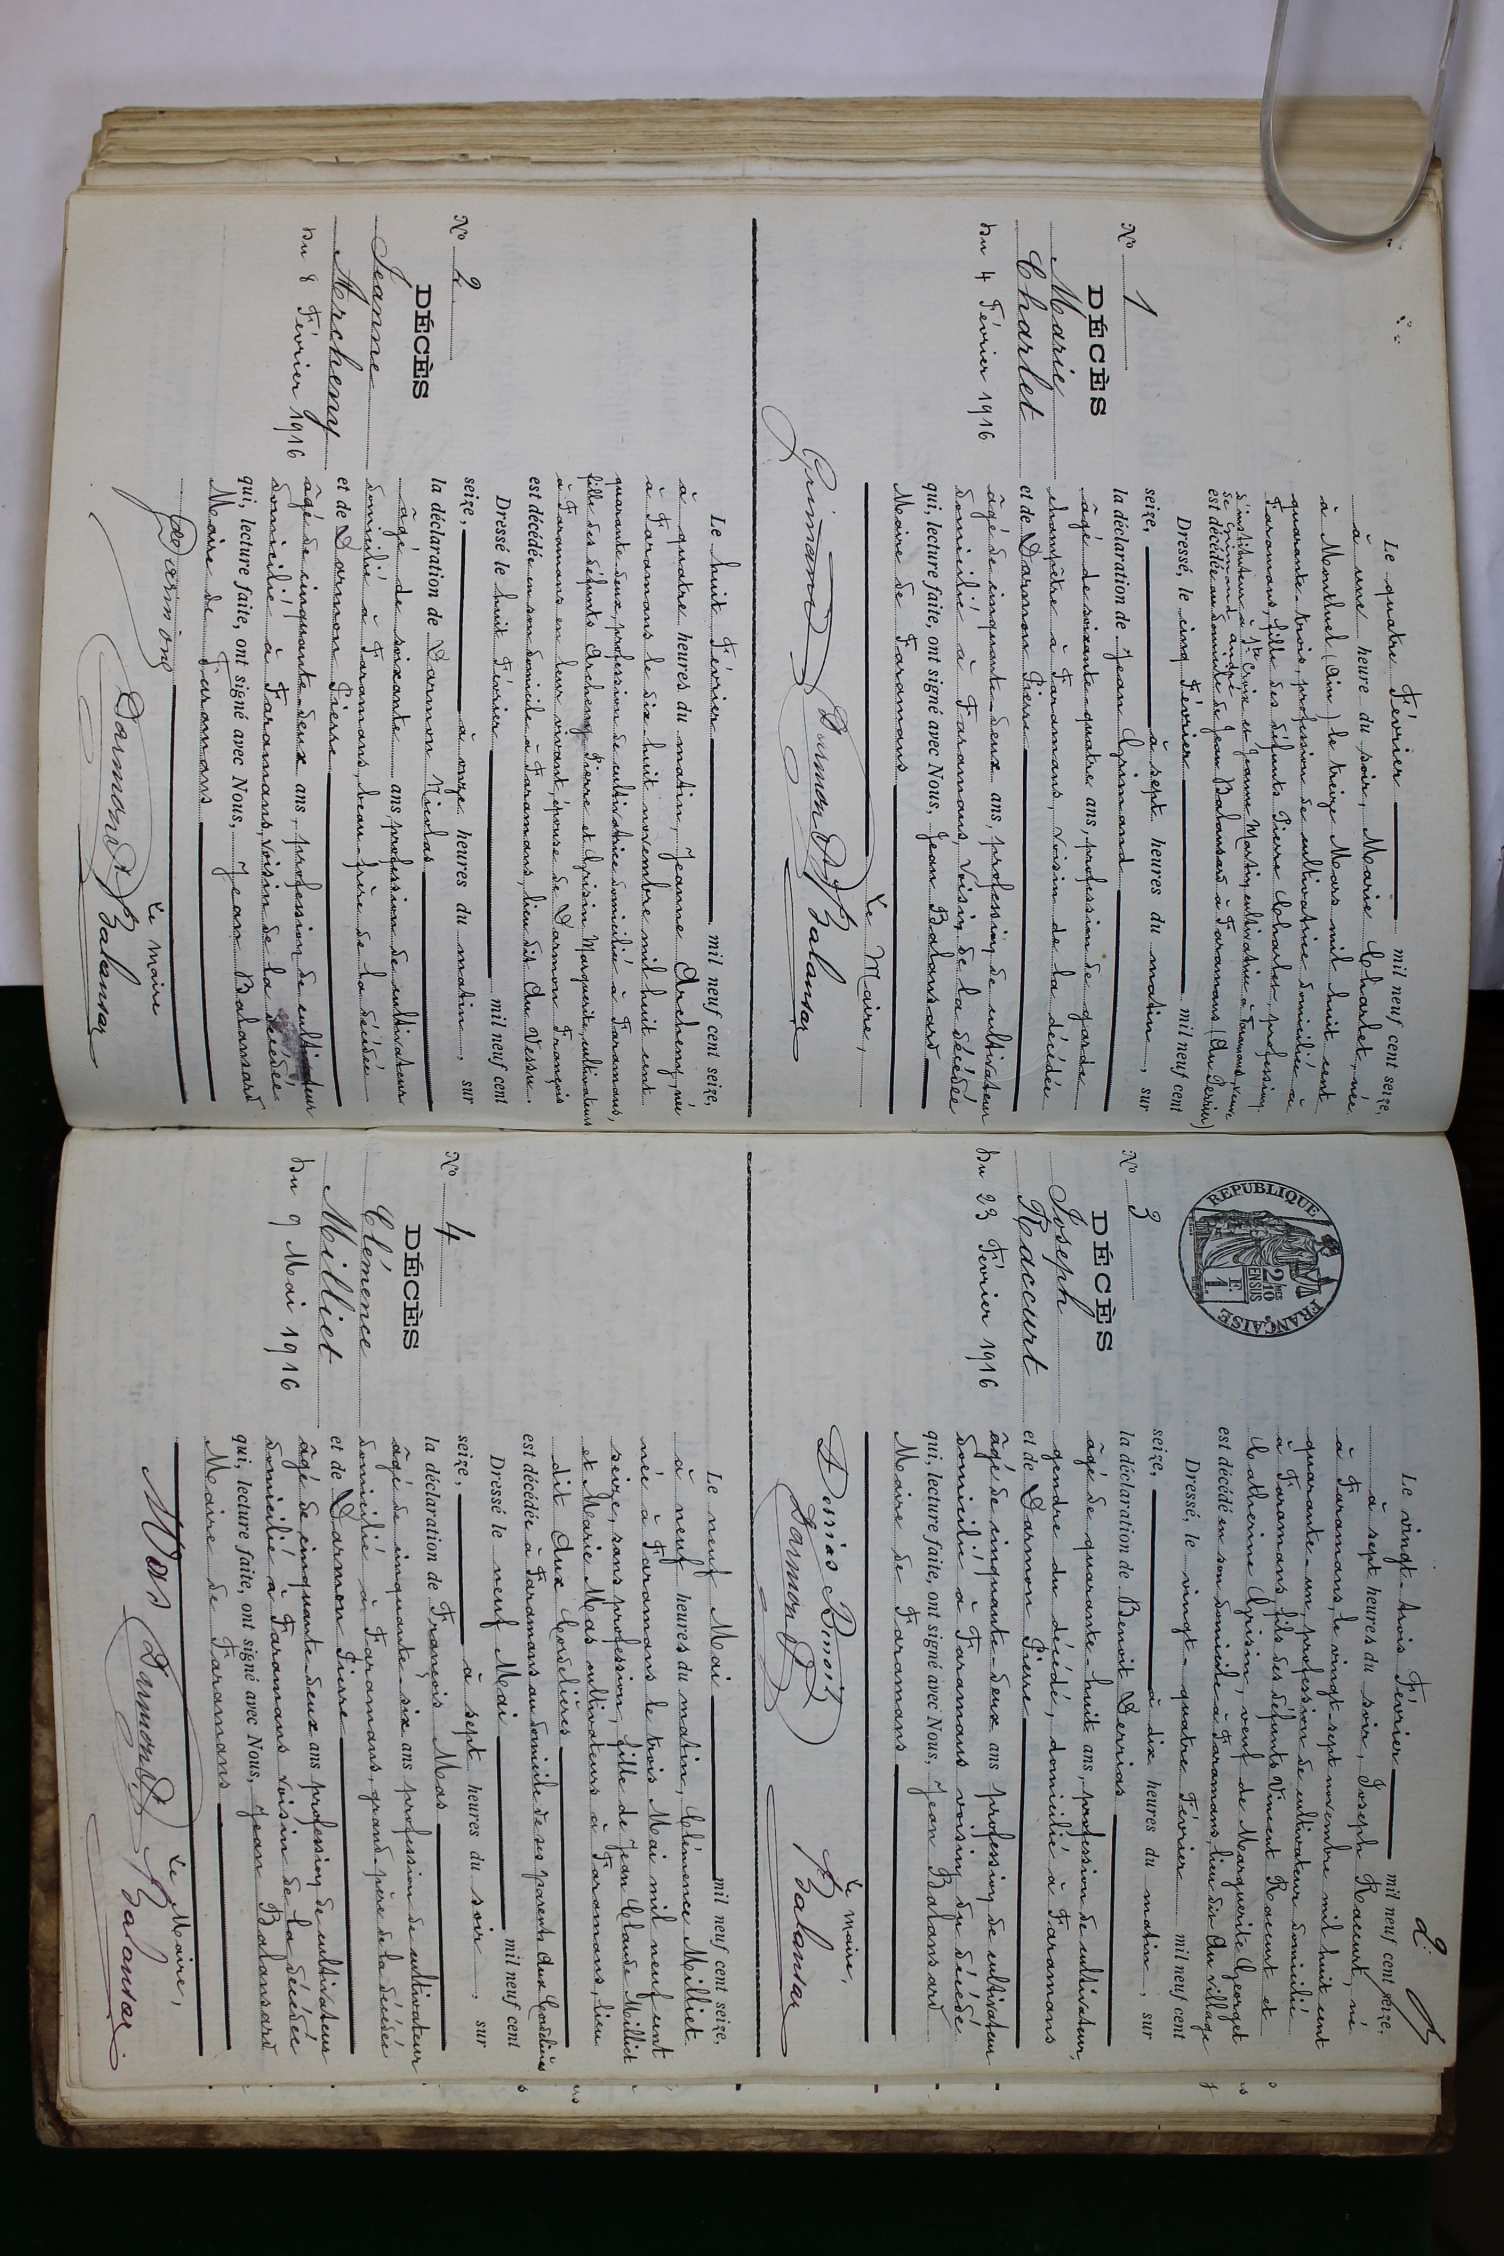 N° 1
DÉCÈS
Marie
Charlet
du 4 Février 1916
Le quatre Février mil neuf cent seize,
à une heure du soir, Marie Charlet, née
à Montluel (Ain) le treize Mars mil huit cent
quarante-trois, profession de cultivatrice domiciliée à
Faramans, fille des défunts Pierre Charlet, profession
d'instituteur à Ste Croix et Jeanne Martin, cultivatrice à Faramans, veuve
de Grimand André
est décédée au domicile de Jean Balansard à Faramans (Au Perrier)
Dressé, le cinq Février mil neuf cent
seize, à sept heures du matin, sur
la déclaration de Jean Grimand
âgé de soixante-quatre ans, profession de garde
champêtre à Faramans, voisin de la décédée
et de Darmon Pierre
âgé de cinquante-deux ans, profession de cultivateur
domicilié à Faramans, voisin de la décédée
qui, lecture faite, ont signé avec Nous, Jean Balansard
Maire de Faramans
Le Maire,
Grimand Darmon Balansar
N° 2
DÉCÈS
Jeanne
Archeny
du 8 Février 1916
Le huit Février mil neuf cent seize,
à quatre heures du matin, Jeanne Archeny, née
à Faramans le dix-huit novembre mil huit cent
quarante-deux, profession de cultivatrice domiciliée à Faramans,
fille des défunts Archeny Pierre et Grisin Marguerite, cultivateurs
à Faramans en leur vivant, épouse de Darmon François
est décédée en son domicile à Faramans, lieu dit Au Vessu.
Dressé le huit Février mil neuf cent
seize, à onze heures du matin, sur
la déclaration de Darmon Nicolas
âgé de soixante ans, profession de cultivateur
domicilié à Faramans, beau-frère de la décédée
et de Darmon Pierre
âgé de cinquante-deux ans, profession de cultivateur
domicilié à Faramans, voisin de la décédée
qui, lecture faite, ont signé avec Nous, Jean Balansard
Maire de Faramans
Le Maire
Darmon Darmon Balansar
2
RÉPUBLIQUE FRANÇAISE
2/10 EN SUS
1 F.
N° 3
DÉCÈS
Joseph
Raccurt
du 23 Février 1916
Le vingt-trois Février mil neuf cent seize,
à sept heures du soir, Joseph Raccurt, né
à Faramans, le vingt-sept novembre mil huit cent
quarante-un, profession de cultivateur domicilié
à Faramans, fils des défunts Vincent Raccurt et
Catherine Grisin, veuf de Marguerite Georget
est décédé en son domicile à Faramans, lieu dit Au village
Dressé, le vingt-quatre Février mil neuf cent
seize, à dix heures du matin, sur
la déclaration de Benoit Derrias
âgé de quarante-huit ans, profession de cultivateur,
gendre du décédé, domicilié à Faramans
et de Darmon Pierre
âgé de cinquante-deux ans profession de cultivateur
domicilié à Faramans voisin du décédé
qui, lecture faite, ont signé avec Nous, Jean Balansard
Maire de Faramans
Le Maire,
Derrias Benoit
Darmon Balansar
N° 4
DÉCÈS
Clémence
Milliet
du 9 Mai 1916
Le neuf Mai mil neuf cent seize,
à neuf heures du matin, Clémence Milliet
née à Faramans le trois Mai mil neuf cent
seize, sans profession, fille de Jean Claude Milliet
et Marie Mas cultivateurs à Faramans, lieu
dit Aux Cordelières
est décédée à Faramans au domicile de ses parents Aux Cordelières
Dressé le neuf Mai mil neuf cent
seize, à sept heures du soir, sur
la déclaration de François Mas
âgé de cinquante-six ans profession de cultivateur
domicilié à Faramans, grand-père de la décédée
et de Darmon Pierre
âgé de cinquante-deux ans profession de cultivateur
domicilié à Faramans voisin de la décédée
qui, lecture faite, ont signé avec Nous, Jean Balansard
Maire de Faramans
Le Maire,
Mas Darmon Balansar